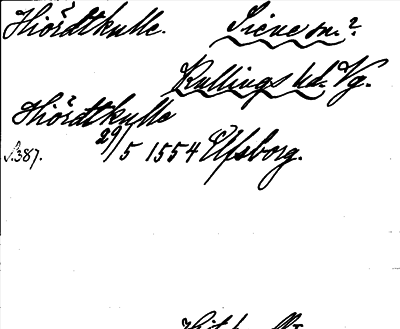 Hiördtkulle. Siene sn.?
Kullings hd. Vg.
Hiördtkulle
S.387. 29/5 1554 Elfsborg.